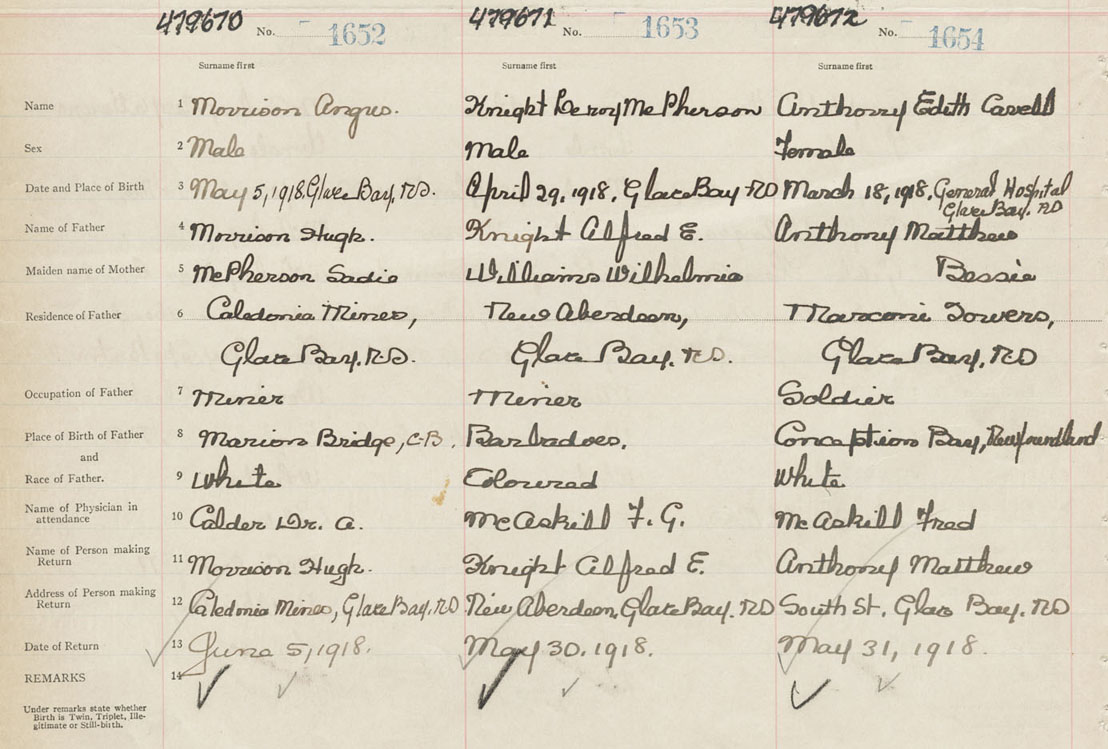 479670 No. 1652 479671 No. 1653 479672 No. 1654
Surname first Surname first Surname first
Name 1 Morrison Angus. Knight Leroy McPherson Anthony Edith Cavell
Sex 2 Male Male Female
Date and Place of Birth 3 May 5, 1918. Glace Bay, RD. April 29, 1918, Glace Bay RD March 18, 1918, General Hospital
Glace Bay. RD
Name of Father 4 Morrison Hugh. Knight Alfred E. Anthony Matthew
Maiden name of Mother 5 McPherson Sadie Williams Wilhelmie Bessie
Residence of Father 6 Caledonia Mines, New Aberdeen, Marconi Towers,
Glace Bay. RD. Glace Bay. RD. Glace Bay, RD
Occupation of Father 7 Miner Miner Soldier
Place of Birth of Father 8 Marion Bridge, C-B. Barbadoes, Conception Bay, Newfoundland
and
Race of Father. 9 White Coloured White
Name of Physician in
attendance 10 Calder Dr. A. McAskill F. G. McAskill Fred
Name of Person making
Return 11 Morrison Hugh. Knight Alfred E. Anthony Matthew
Address of Person making
Return 12 Caledonia Mines, Glace Bay. RD New Aberdeen, Glace Bay. RD South St. Glace Bay. RD
Date of Return 13 June 5, 1918. May 30. 1918. May 31, 1918.
REMARKS 14
Under remarks state whether
Birth is Twin, Triplet, Ille-
gitimate or Still-birth.